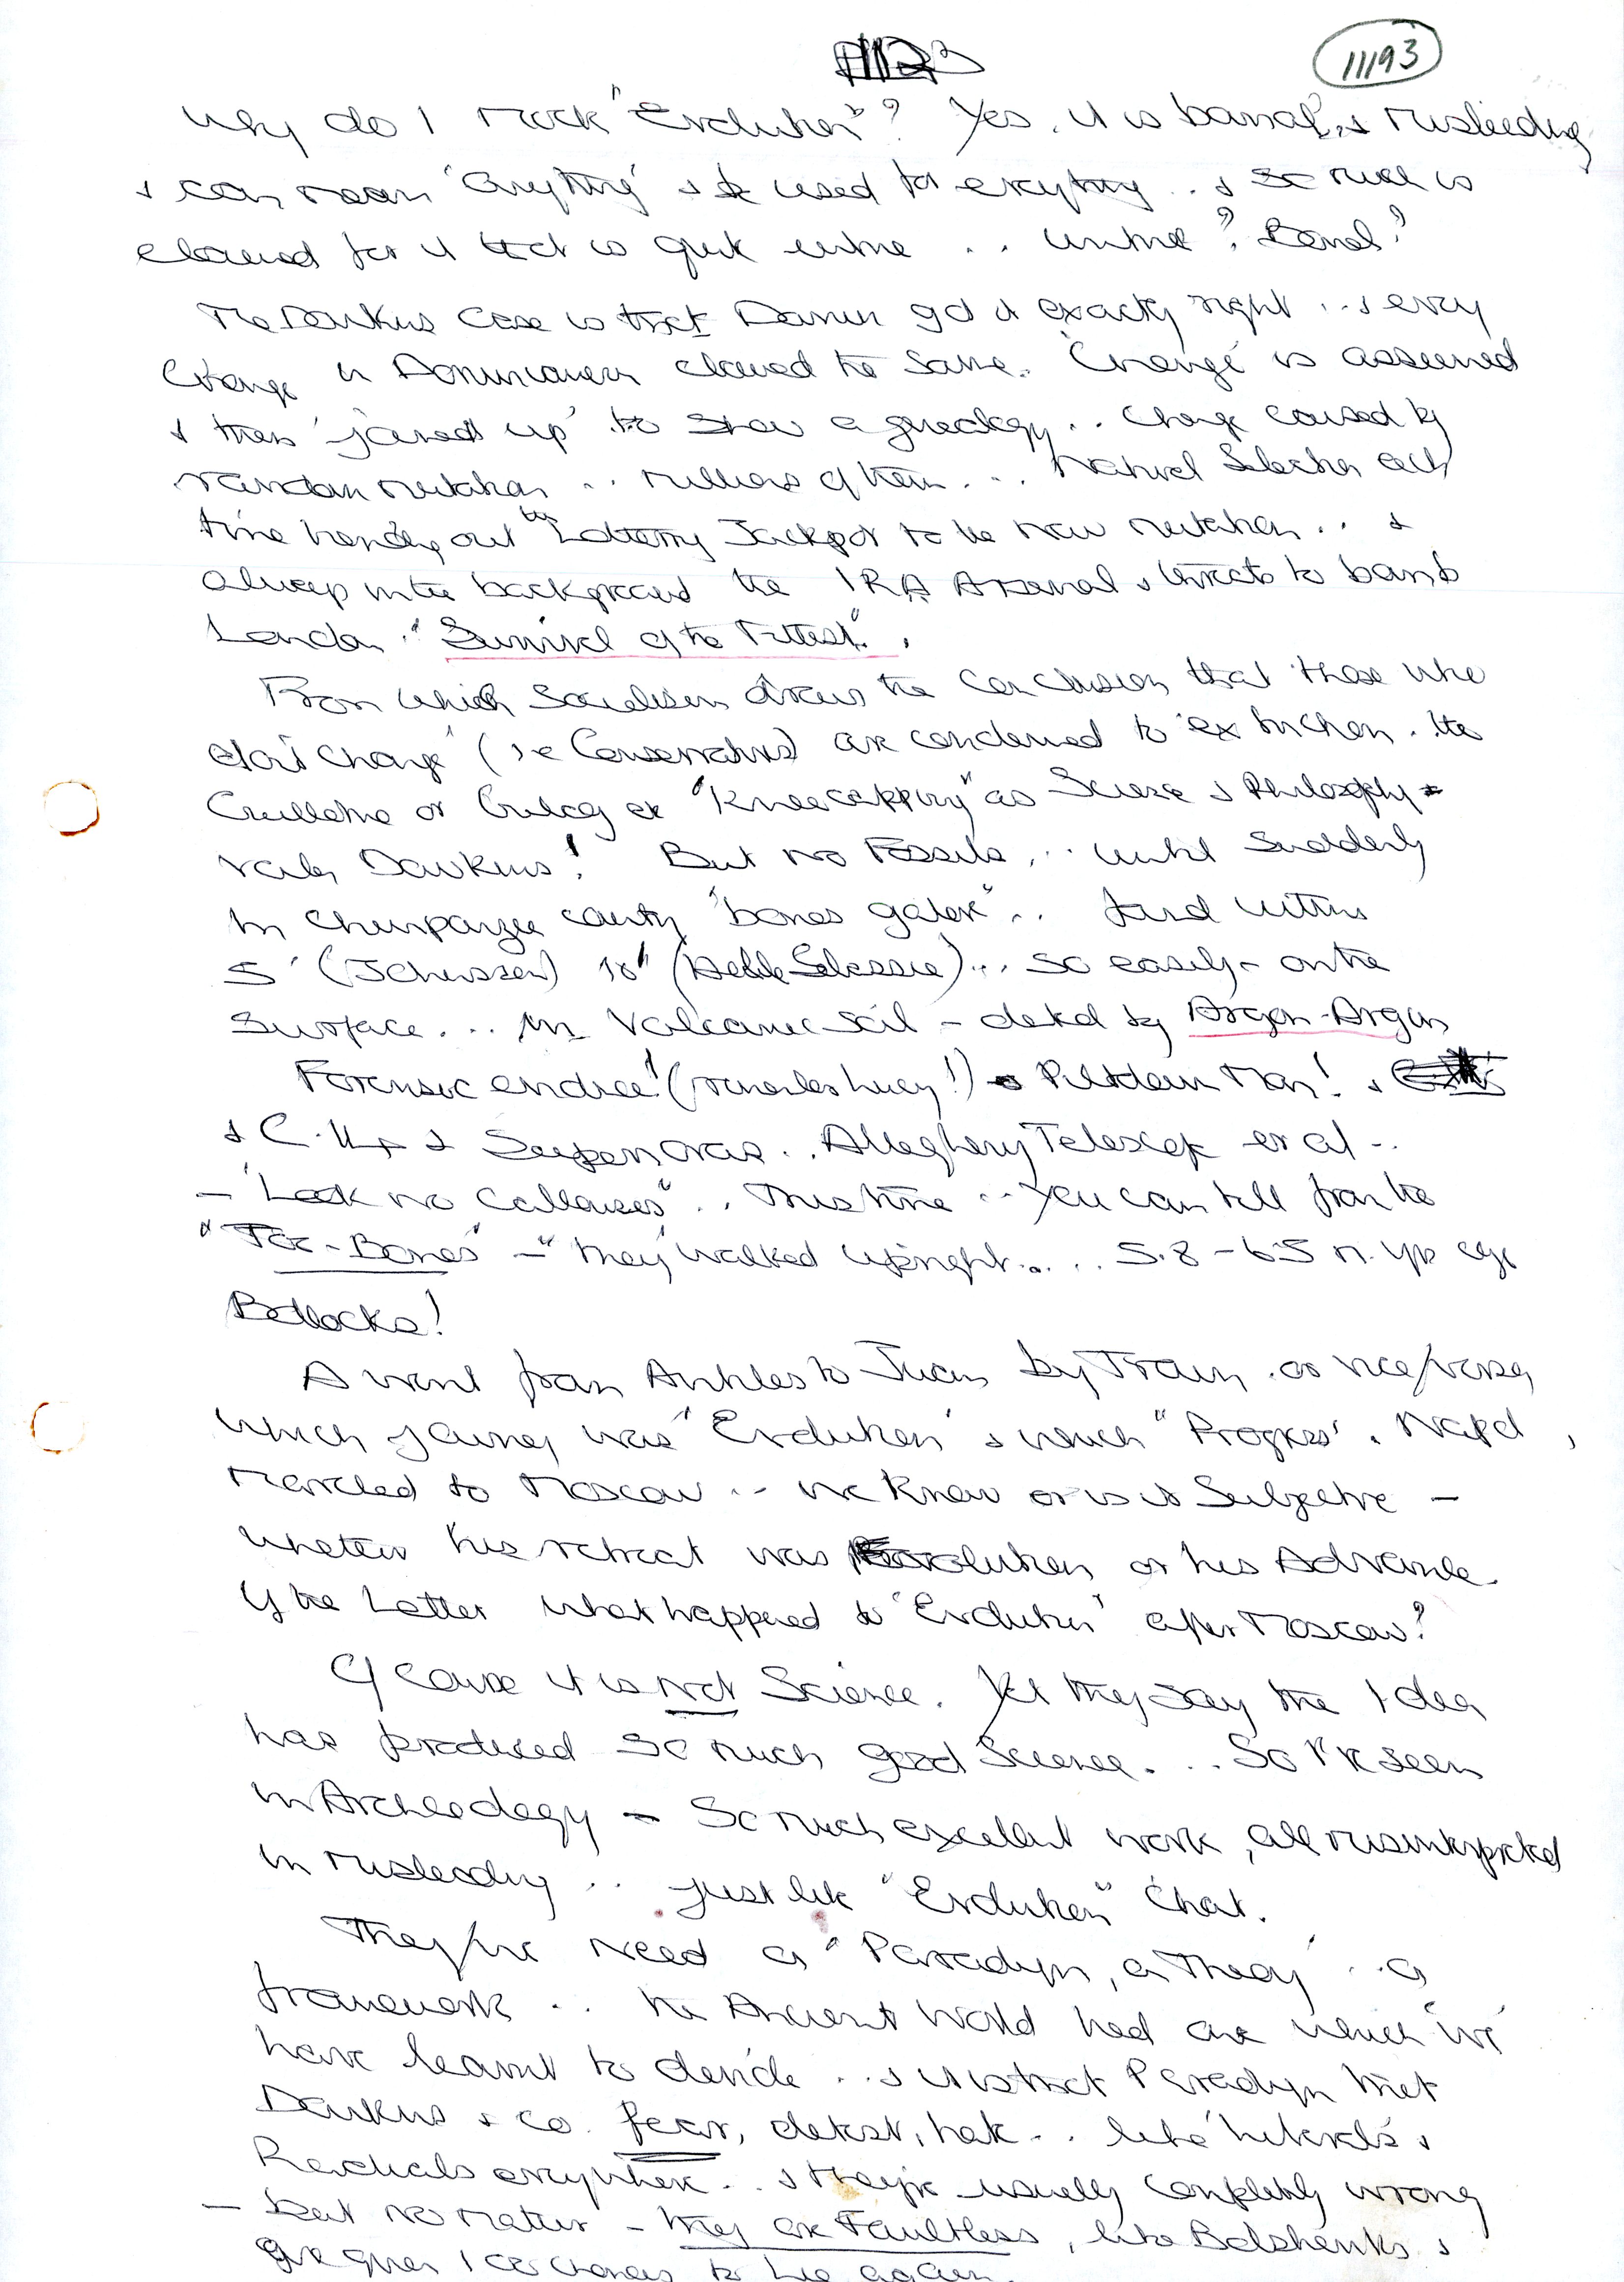 11193
Why do I mock "Evolution"? Yes, it is banal, & misleading
& can mean 'anything' & be used for everything .. & so much is
claimed for it that is quite untrue .. untrue? Banal?
The Dawkins Case is that Darwin got it exactly right .. & every
Change in Darwinianism claimed the same. 'Change' is assumed
& then 'joined up' to show a genealogy .. Change caused by
random mutation .. millions of them ... Natural Selection each
time handing out the Lottery Jackpot to the New mutation .. &
always in the background the IRA Arsenal & threats to bomb
London "Survival of the Fittest".
From which Socialism draws the Conclusion that those who
don't 'Change' (i.e Conservatives) are condemned to extinction. The
Guillotine or Gulag or "Kneecapping" as Science & Philosophy
vide Dawkins! But no Fossils .. until suddenly
in Chimpanzee country "bones galore" .. found within
5' (Johanson) 10" (Haile Selassie) .. so easily - on the
Surface ... in Volcanic Soil - dated by Argon-Argon
Forensic evidence! ( Lucy!) Piltdown Man! &
& C.14 & Supernovas .. Allegheny Telescope et al ..
- "Look no Callouses" .. This time .. you can tell from the
"Toe-Bones" - "they walked upright .... 5.8 - 6.5 m. yrs ago
Bollocks!
A went from Antibes to Juan by Train . or vice/versa
which journey was "Evolution" & which "Progress". Nap'd
marched to Moscow .. we know or is it Subjective -
whether his retreat was Evolution or his Advance.
If the Latter what happened to 'Evolution' after Moscow?
Of course it is not Science. Yet they say the Idea
has produced so much good Science ... So I've seen
in Archeology - So much excellent work, all misinterpreted
in misleading .. just like "Evolution" Chat.
They/we need a "Paradigm, a Theory" .. a
framework .. the Ancient World had one which 'we'
have learnt to deride .. & it is that Paradigm that
Dawkins & co. fear, detest, hate .. like 'liberals' &
Radicals everywhere .. & they're usually completely wrong
- but no matter - they are Faultless, like Bolsheviks &
are given 100 chances to lie again.